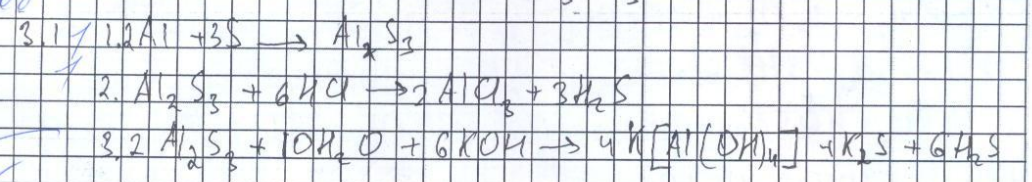 3.1 1. 2Al + 3S → Al₂S₃
2. Al₂S₃ + 6HCl → 2AlCl₃ + 3H₂S
3. 2Al₂S₃ + 10H₂O + 6KOH → 4K[Al(OH)₄] + K₂S + 6H₂S